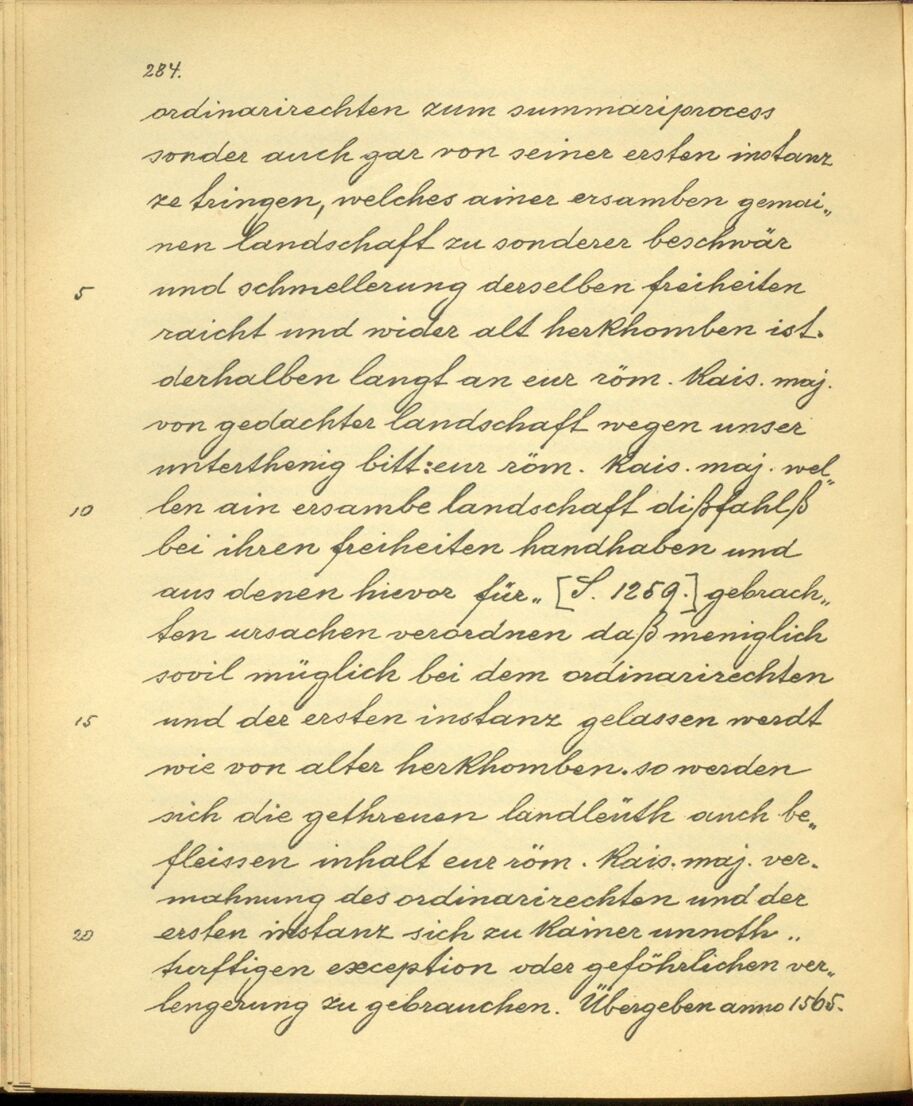 284.
ordinarirechten zum summariprocess
sonder auch gar von seiner ersten instanz
ze tringen, welches ainer ersamben gemai„
nen landschaft zu sonderer beschwär
5 und schmellerung derselben freiheiten
raicht und wider alt herkhomben ist.
derhalben langt an eur röm. kais. maj.
von gedachter landschaft wegen unser
unterthenig bitt: eur röm. kais. maj. wel„
10 len ain ersambe landschaft dißfahlß
bei ihren freiheiten handhaben und
aus denen hievor für„ [S. 1259.] gebrach„
ten ursachen verordnen daß meniglich
sovil müglich bei dem ordinarirechten
15 und der ersten instanz gelassen werdt
wie von alter herkhomben. so werden
sich die gethreuen landleüth auch be„
fleissen inhalt eur röm. kais. maj. ver„
mahnung des ordinarirechten und der
20 ersten instanz sich zu kainer unnoth„
turftigen exception oder geföhrlichen ver„
lengerung zu gebrauchen. Übergeben anno 1565.